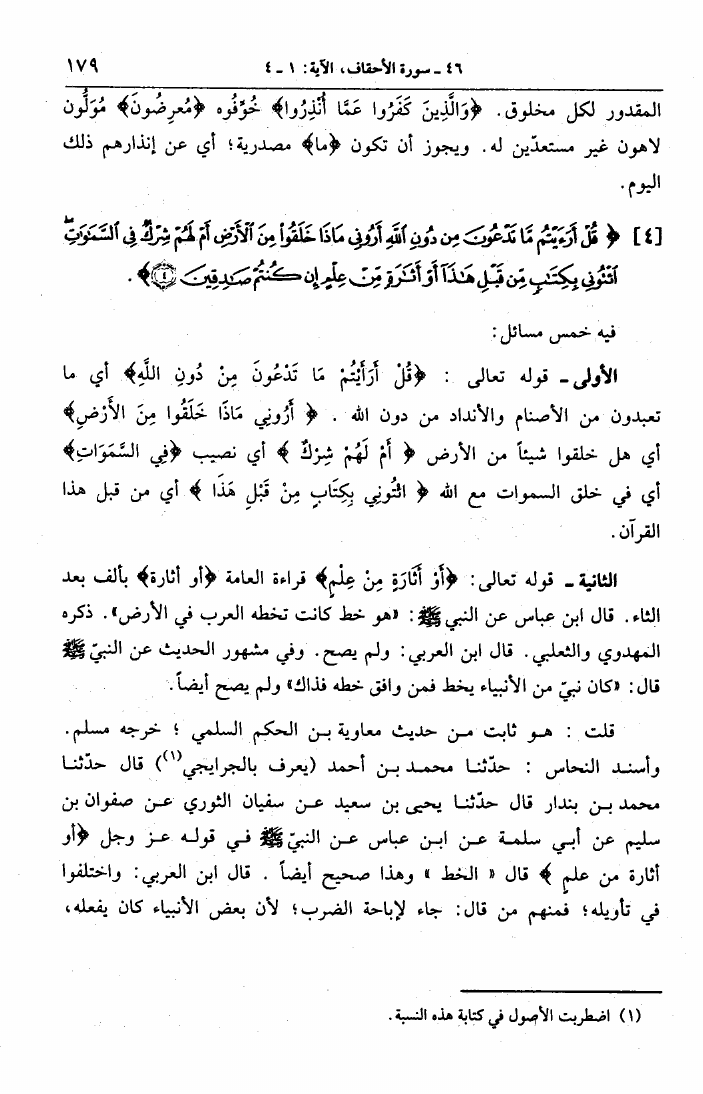 ٤٦ ـ سورة الأحقاف، الآية: ١ ـ ٤ ١٧٩
المقدور لكل مخلوق. ﴿وَالَّذِينَ كَفَرُوا عَمَّا أُنْذِرُوا﴾ خُوِّفُوه ﴿مُعرِضُونَ﴾ مُوَلُّون
لاهون غير مستعدّين له. ويجوز أن تكون ﴿ما﴾ مصدرية؛ أي عن إنذارهم ذلك
اليوم.
[٤] ﴿ قُلْ أَرَءَيْتُم مَّا تَدْعُونَ مِن دُونِ اللَّهِ أَرُونِي مَاذَا خَلَقُوا۟ مِنَ ٱلْأَرْضِ أَمْ لَهُمْ شِرْكٌ فِي ٱلسَّمَٰوَٰتِ ۖ
ٱئْتُونِي بِكِتَٰبٍ مِّن قَبْلِ هَٰذَآ أَوْ أَثَٰرَةٍ مِّنْ عِلْمٍ إِن كُنتُمْ صَٰدِقِينَ ﴿٤﴾ ﴾.
فيه خمس مسائل:
الأولى ـ قوله تعالى : ﴿قُلْ أَرَأَيْتُمْ مَا تَدْعُونَ مِنْ دُونِ اللَّهِ﴾ أي ما
تعبدون من الأصنام والأنداد من دون الله . ﴿ أَرُونِي مَاذَا خَلَقُوا مِنَ الأَرْضِ﴾
أي هل خلقوا شيئاً من الأرض ﴿ أَمْ لَهُمْ شِرْكٌ ﴾ أي نصيب ﴿فِي السَّمَوَاتِ﴾
أي في خلق السموات مع الله ﴿ ائْتُونِي بِكِتَابٍ مِنْ قَبْلِ هَذَا ﴾ أي من قبل هذا
القرآن.
الثانية ـ قوله تعالى: ﴿أَوْ أَثَارَةٍ مِنْ عِلْمٍ﴾ قراءة العامة ﴿أو أثارة﴾ بألف بعد
الثاء. قال ابن عباس عن النبي ﷺ: «هو خط كانت تخطه العرب في الأرض». ذكره
المهدوي والثعلبي. قال ابن العربي: ولم يصح. وفي مشهور الحديث عن النبيّ ﷺ
قال: «كان نبيّ من الأنبياء يخط فمن وافق خطه فذاك» ولم يصح أيضاً.
قلت : هو ثابت من حديث معاوية بن الحكم السلمي ؛ خرجه مسلم.
وأسند النحاس : حدّثنا محمد بن أحمد (يعرف بالجرايجي(١)) قال حدّثنا
محمد بن بندار قال حدّثنا يحيى بن سعيد عن سفيان الثوري عن صفوان بن
سليم عن أبي سلمة عن ابن عباس عن النبيّ ﷺ في قوله عز وجل ﴿أو
أثارة من علم ﴾ قال « الخط » وهذا صحيح أيضاً . قال ابن العربي: واختلفوا
في تأويله؛ فمنهم من قال: جاء لإباحة الضرب؛ لأن بعض الأنبياء كان يفعله،
(١) اضطربت الأصول في كتابة هذه النسبة.